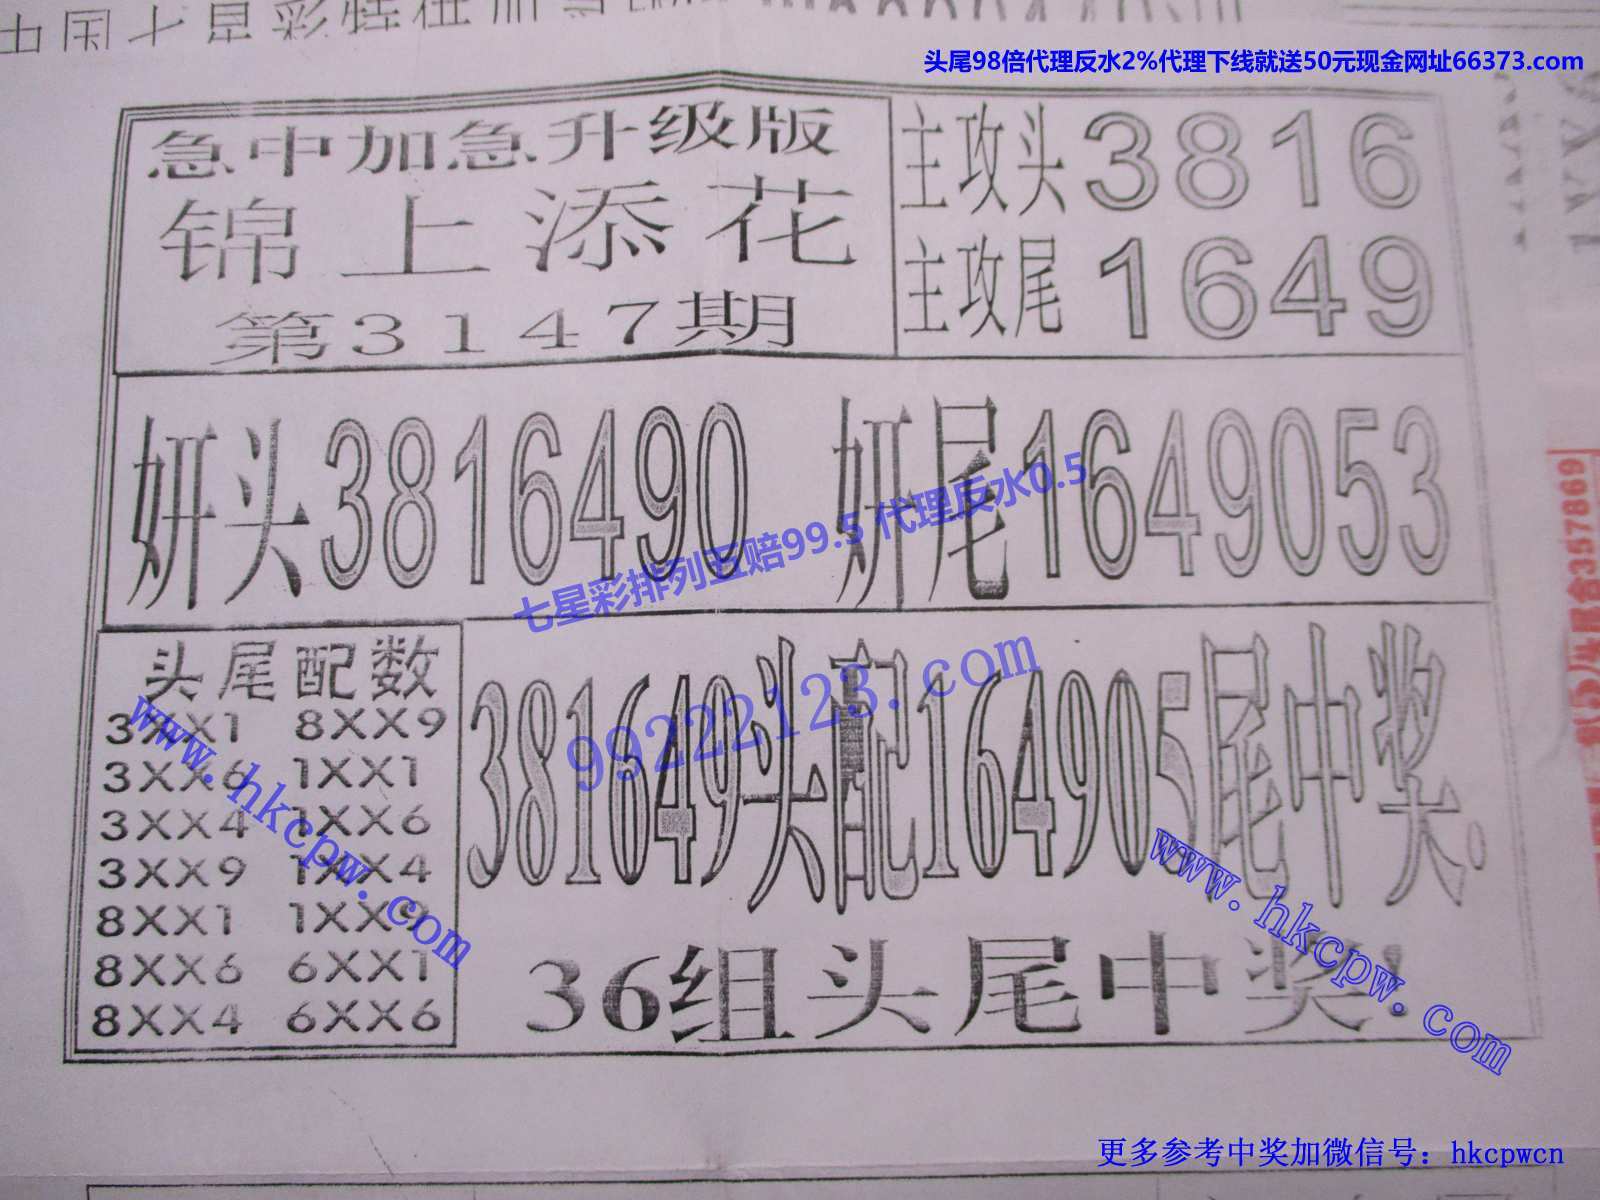 头尾98倍代理反水2%代理下线就送50元现金网址66373.com
急中加急升级版
锦上添花
第3147期
主攻头3816
主攻尾1649
妍头3816490 妍尾1649053
七星彩排列五赔99.5 代理反水0.5
头尾配数
3XX1 8XX9
3XX6 1XX1
3XX4 1XX6
3XX9 1XX4
8XX1 1XX9
8XX6 6XX1
8XX4 6XX6
381649头配164905尾中奖.
36组头尾中奖.
99222123.com
www.hkcpw.com
www.hkcpw.com
更多参考中奖加微信号：hkcpwcn